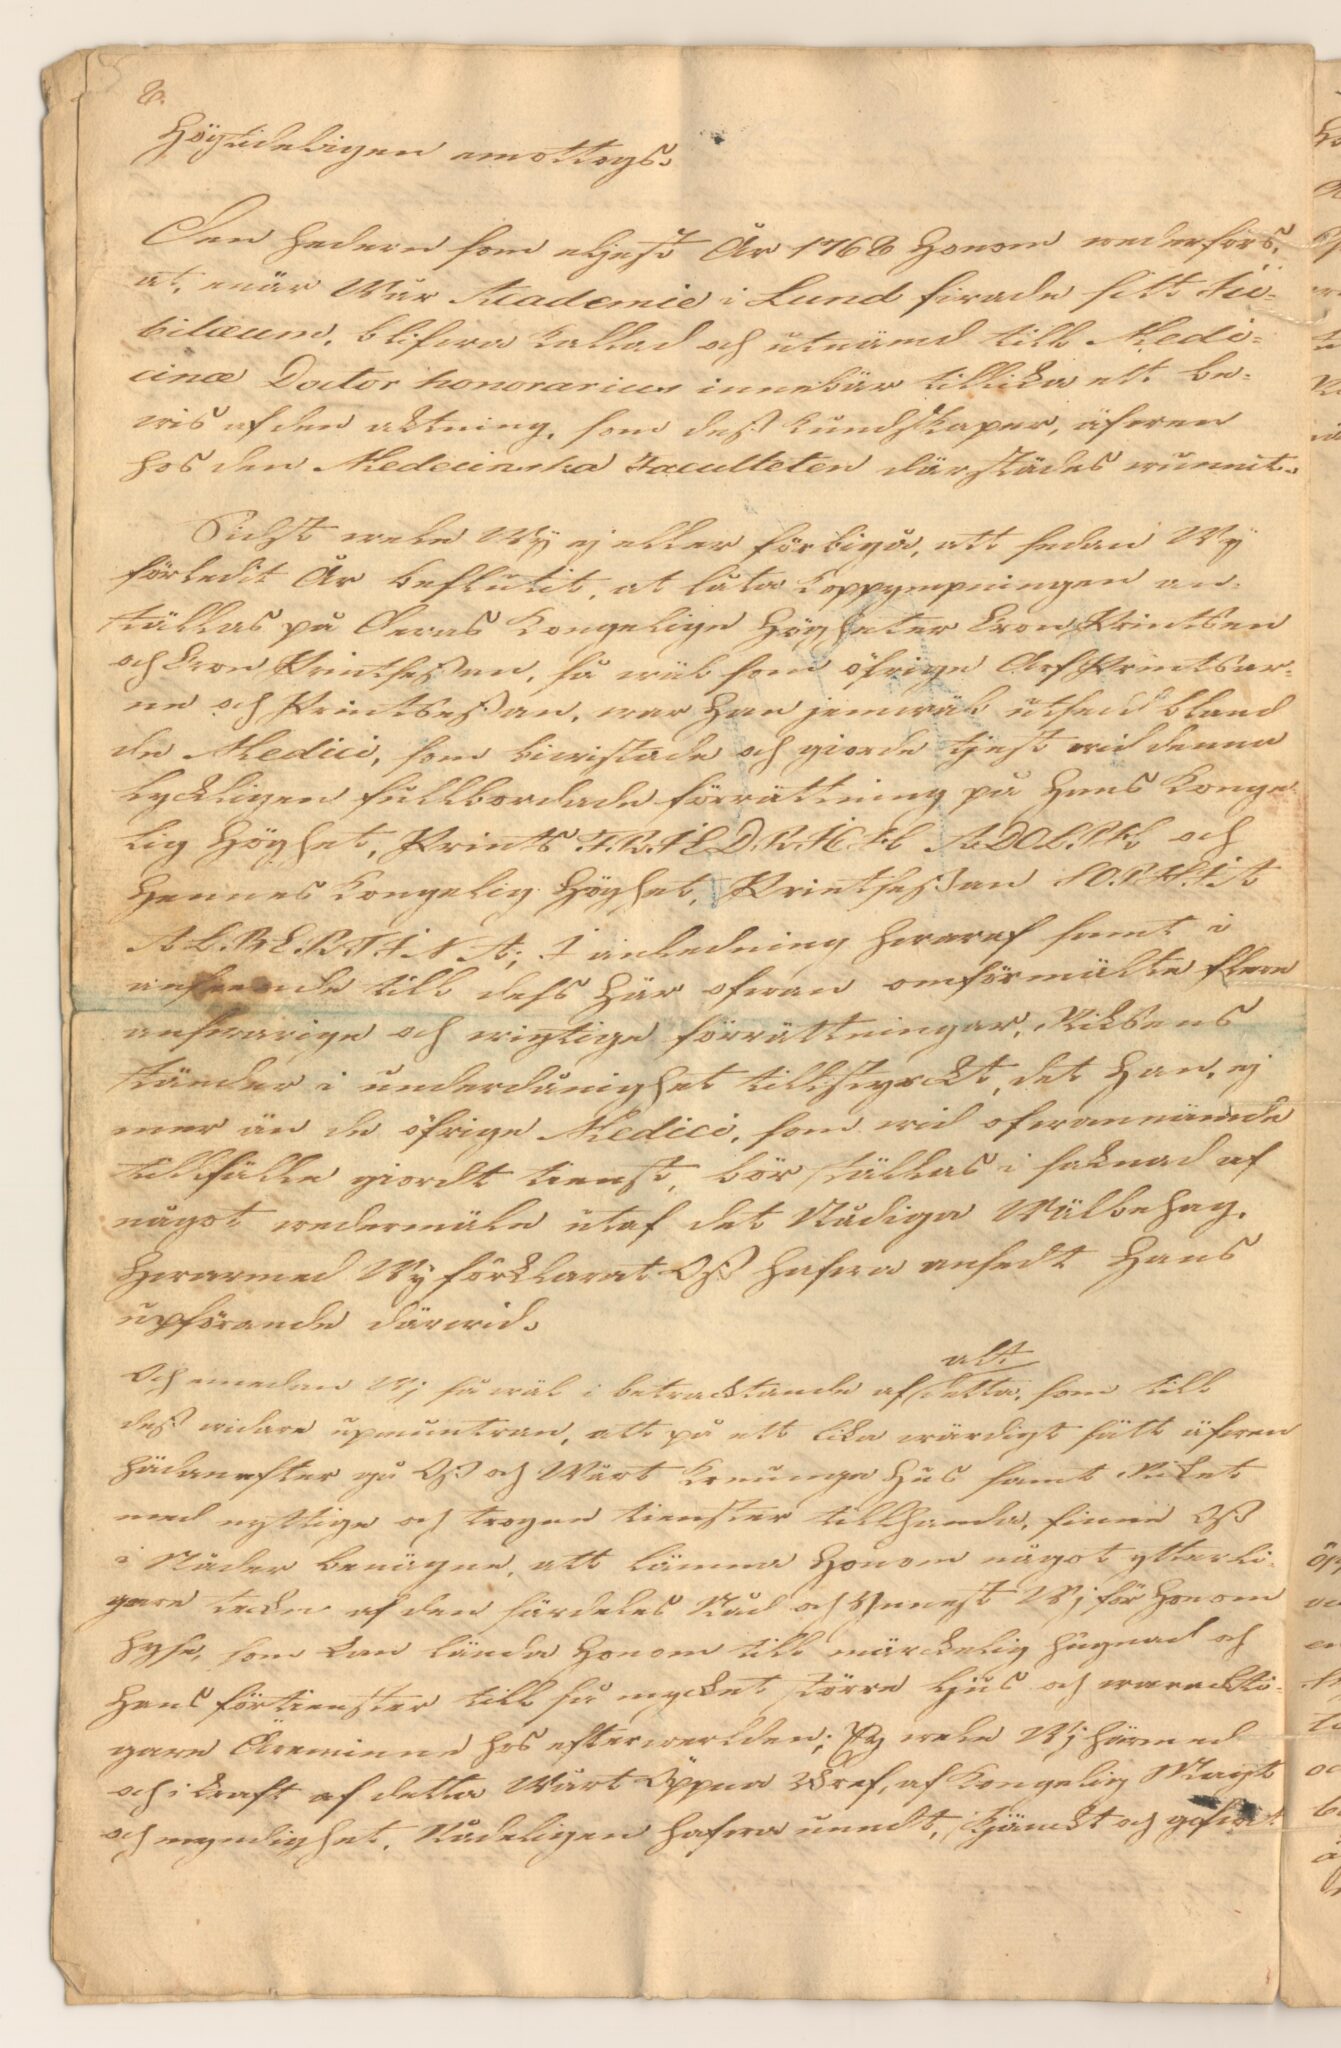 8.
Högtideligen emottogs.
Den hedern som eljest År 1768 honom wederfors,
at, enär Wår Academie i Lund firade sitt Iu-
bilæum, blifwa kallad och utnämd till Medi-
cinæ Doctor honorarius innebär tillika ett be-
wis af den aktning, som dess kundskaper, äfwen
hos den Medecinska Faculteten därstädes wunnit.
Sidst wele Wÿ ej eller förbigå, att sedan Wÿ
förledit År beslutit, at låta koppympningen an-
ställas på Deras Kongelige Högheter Cron Printsen
och Cron Printsessan, så wäl som öfrige Arf Printsar-
ne och Printsessan, war Han jemwäl utsedd bland
de Medici, som biwistade och giorde tjest wid denna
lyckligen fullbordade förrättning på Hans Konge
lig Höghet, Prints FRIEDRICH ADOLPH och
Hennes Kongelig Höghet, Printsessan SOPHIA
ALBERTINA; I anledning hwaraf samt i
anseende till dess här ofwan omförmälte flere
answarige och wigtige förrättningar, Riksens
Ständer i underdånighet tillstyrckt, det Han, ej
mer än de öfrige Medici, som wid ofwannämde
tillfälle giordt tienst, bör ställas i saknad af
något wedermäle utaf det Nådiga Wälbehag,
hwarmed Wÿ förklarat Oss hafwa ansedt Hans
upförande därwid.
alt
Och emedan Wj så wäl i betracktande af detta, som till
dess widare upmuntran, att på ett lika wärdigt sätt äfwen
hädanefter gå Oss och Wårt Konunga Hus samt Riket
med nyttige och trogne tienster tillhanda, finne Oss
i Nåder benägne, att lämna Honom något ytterli-
gare tecken af den särdeles Nåd och Ynnest Wj för Honom
hyse, som kan lända Honom till märckelig hugnad och
hans förtienster till så mycket större ljus och warackti-
gare Äreminne hos efterwerlden; Ty wele Wj härmed
och i kraft af detta Wårt Öppna Bref, af Kongelig Magt
och myndighet, Nådeligen hafwa undt, skjänckt och gifwit